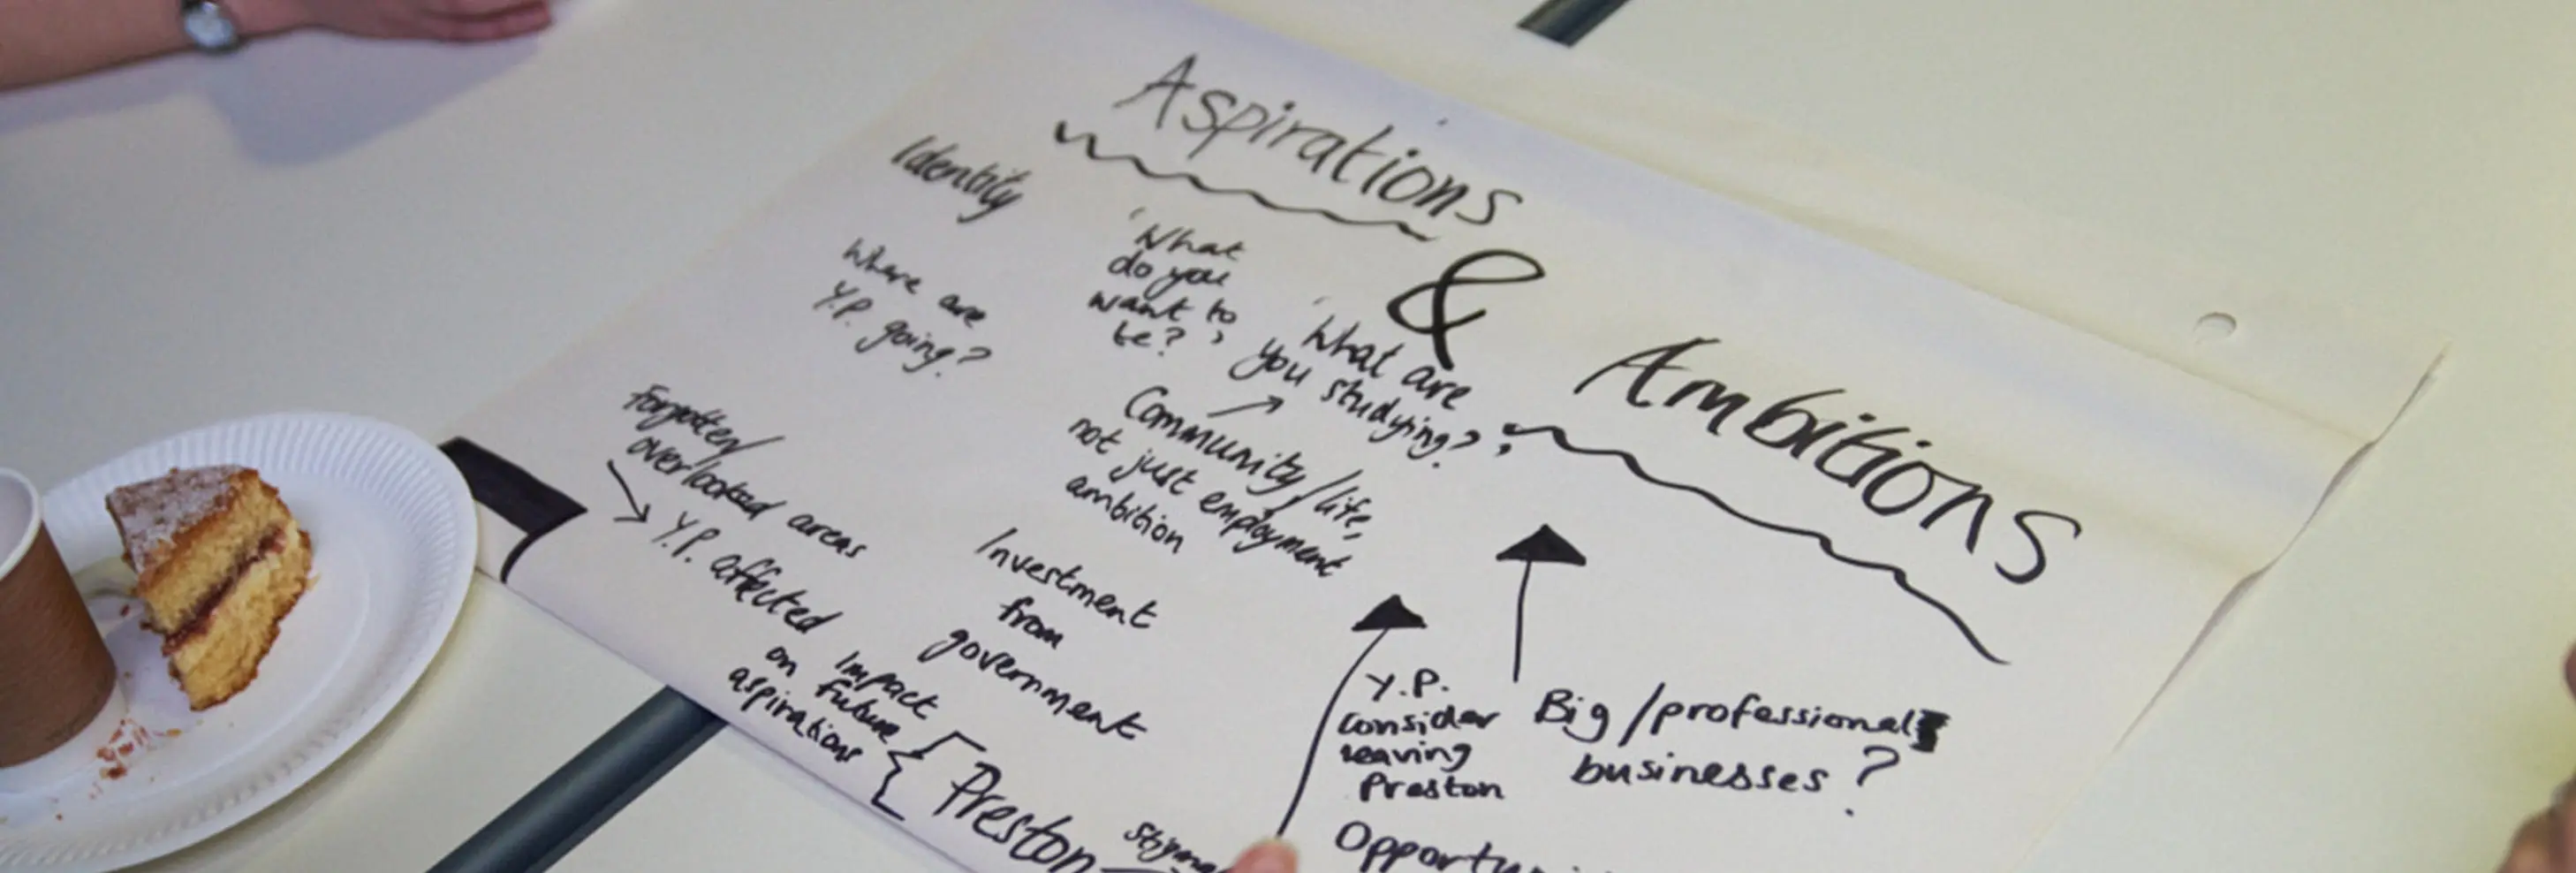 Aspirations
&
Ambitions
Identity
Where are
Y.P. going?
'What
do you
want to
be?'
'What are
you studying?'
Community/life,
not just employment
ambition
Forgotten/
overlooked areas
Y.P. affected
Impact
on future
aspirations
Investment
from
government
Preston
Y.P.
consider
leaving
Preston
Big/professional
businesses?